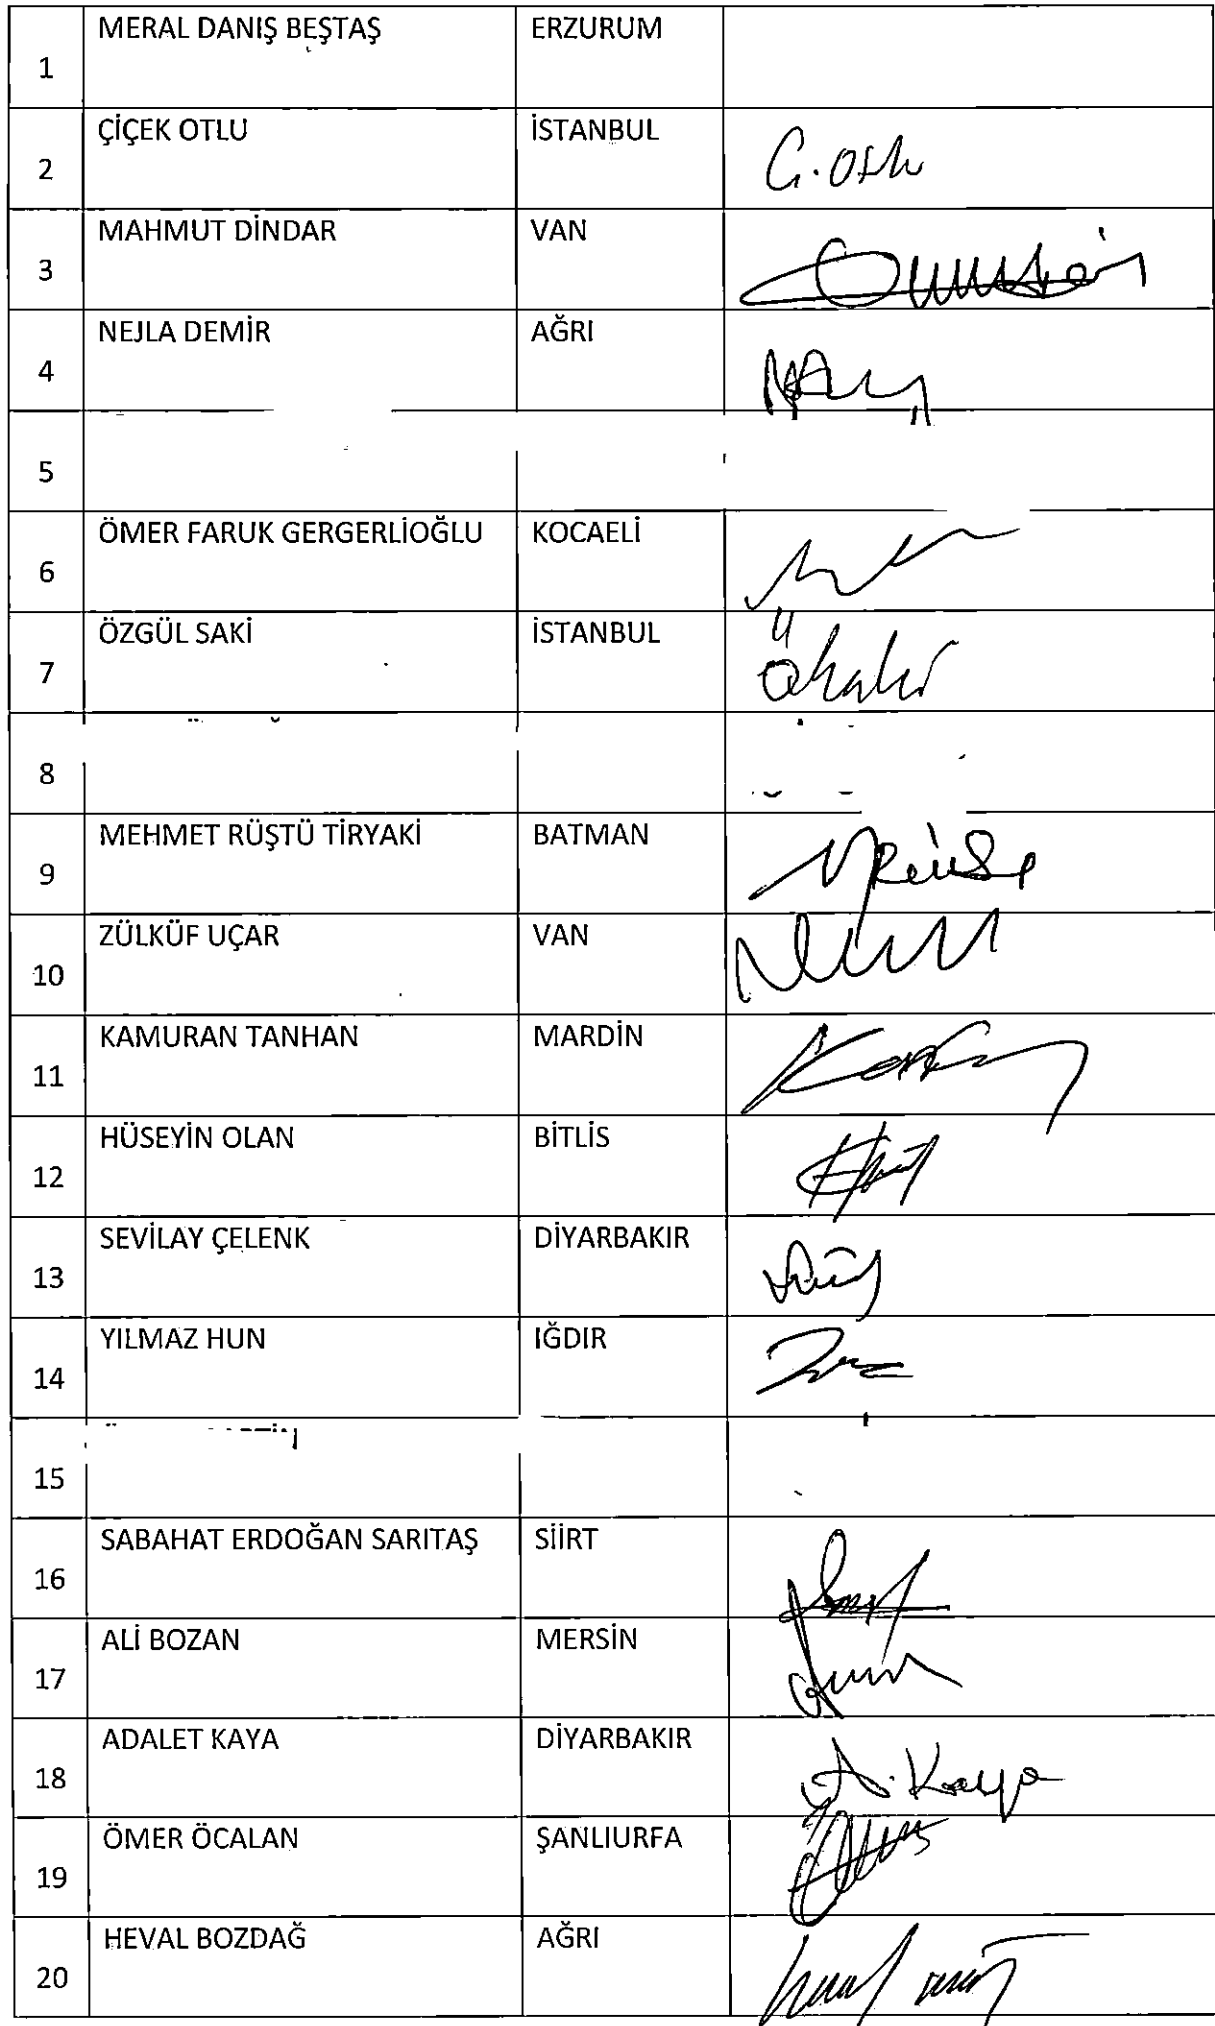 1 MERAL DANIŞ BEŞTAŞ ERZURUM
2 ÇİÇEK OTLU İSTANBUL
3 MAHMUT DİNDAR VAN
4 NEJLA DEMİR AĞRI
5
6 ÖMER FARUK GERGERLİOĞLU KOCAELİ
7 ÖZGÜL SAKİ İSTANBUL
8
9 MEHMET RÜŞTÜ TİRYAKİ BATMAN
10 ZÜLKÜF UÇAR VAN
11 KAMURAN TANHAN MARDİN
12 HÜSEYİN OLAN BİTLİS
13 SEVİLAY ÇELENK DİYARBAKIR
14 YILMAZ HUN IĞDIR
15
16 SABAHAT ERDOĞAN SARITAŞ SİİRT
17 ALİ BOZAN MERSİN
18 ADALET KAYA DİYARBAKIR A. Kaya
19 ÖMER ÖCALAN ŞANLIURFA
20 HEVAL BOZDAĞ AĞRI